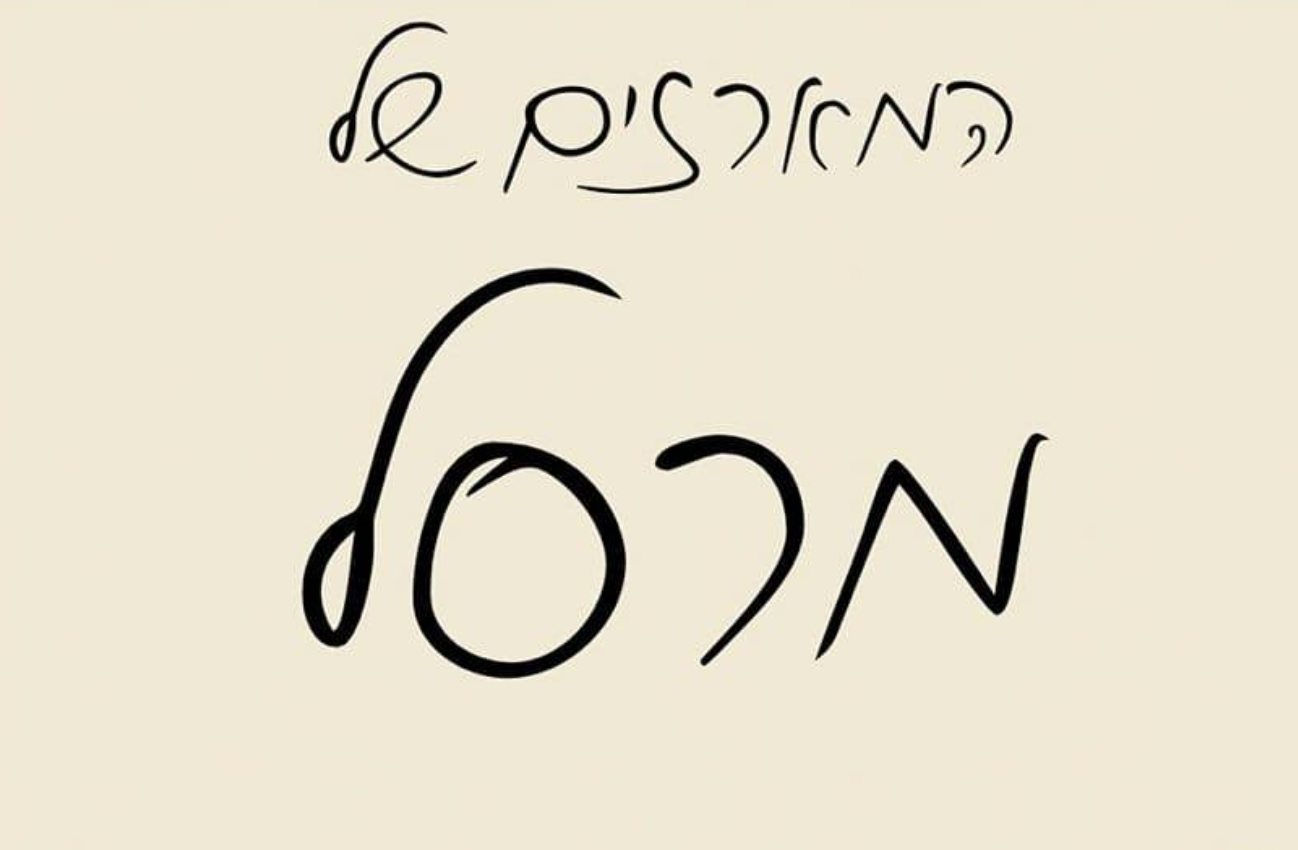 המארזים של
מרסל